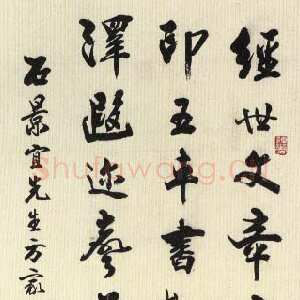 經世文章
印五車書
澤遐迩聲
石景宜先生方家
Shufawang.cn